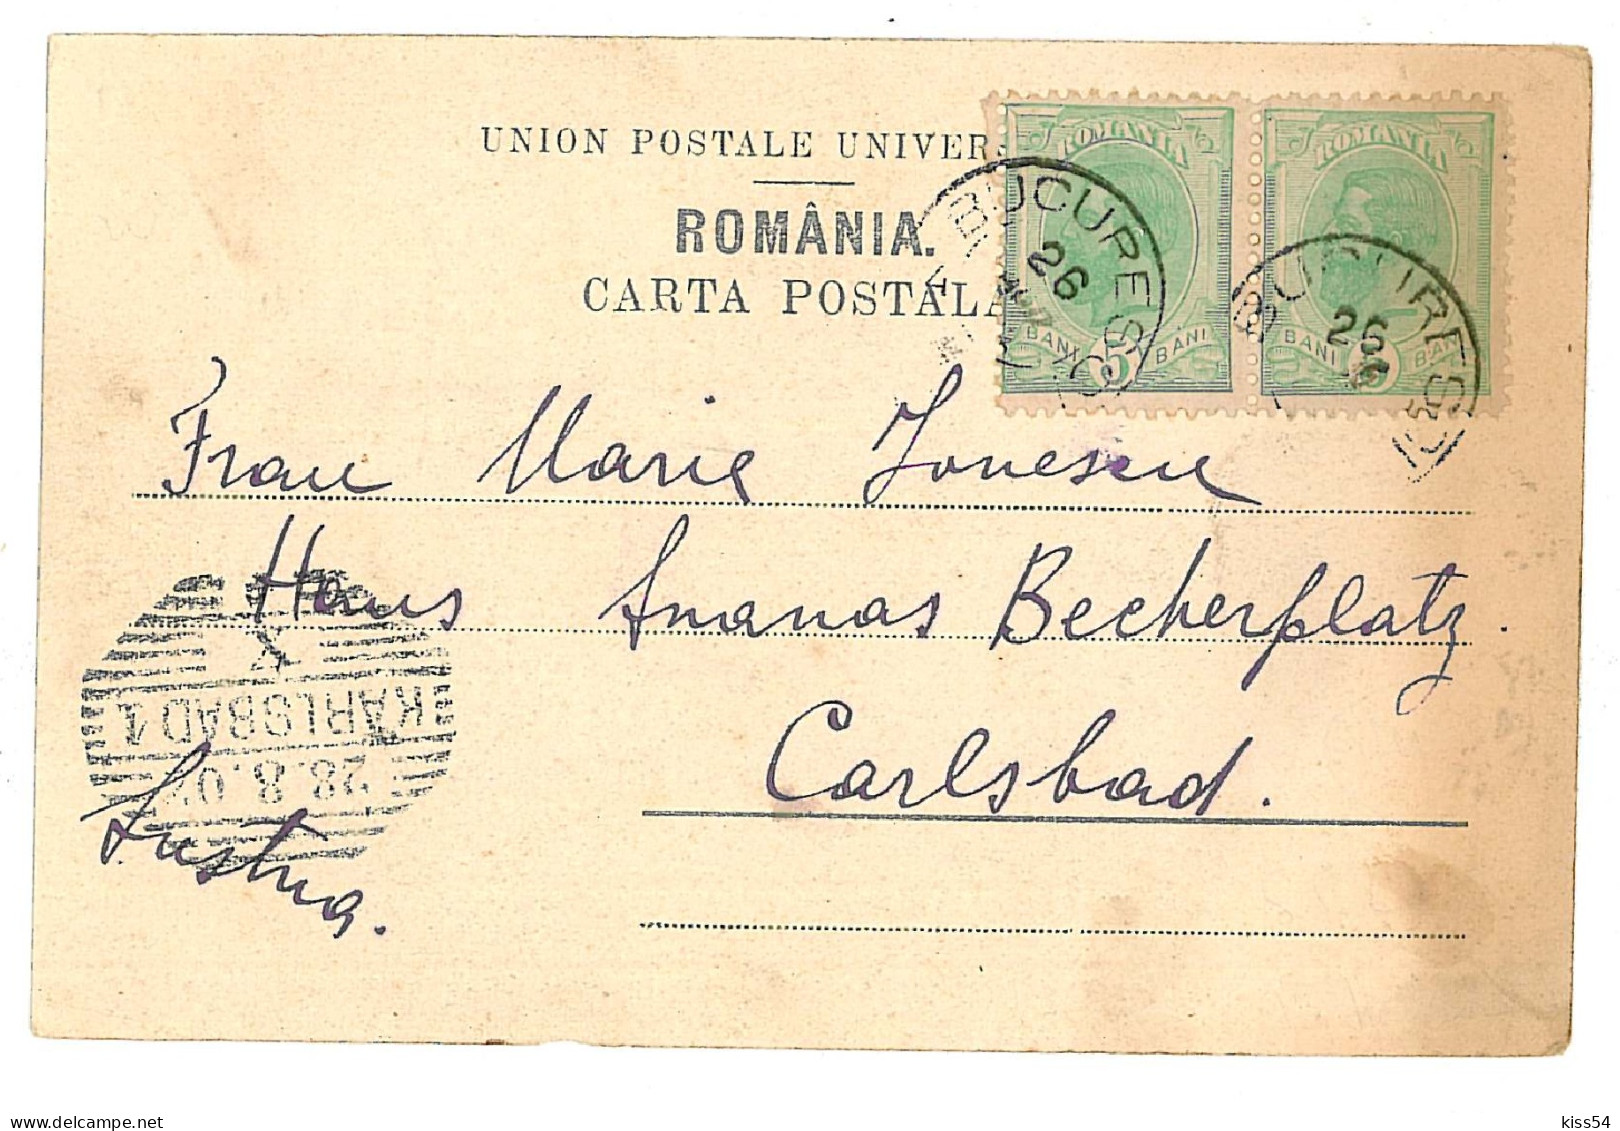 UNION POSTALE UNIVERS
ROMÂNIA.
CARTA POSTALA
ROMANIA
BANI 5 BANI
ROMANIA
BANI 5 BANI
BUCURESCI
26
BUCURESCI
26
Frau Marie Jonescu
Haus Ananas Becherplatz.
Carlsbad.
Austria.
KARLSBAD 1
28.8.07
delcampe.net
kiss54